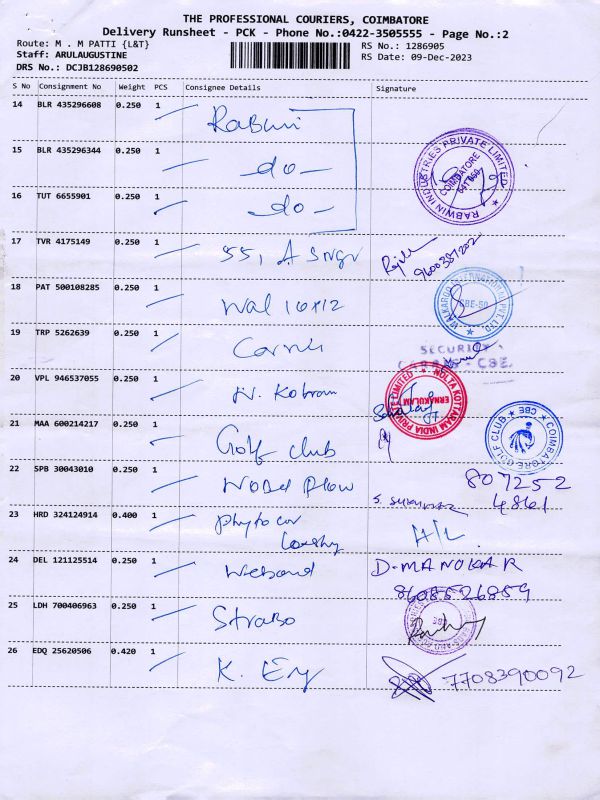 THE PROFESSIONAL COURIERS, COIMBATORE
Delivery Runsheet - PCK - Phone No.:0422-3505555 - Page No.:2
Route: M . M PATTI {L&T}
RS No.: 1286905
Staff: ARULAUGUSTINE
RS Date: 09-Dec-2023
DRS No.: DCJB128690502
S No Consignment No Weight PCS Consignee Details Signature
14 BLR 435296608 0.250 1 Rabwin
15 BLR 435296344 0.250 1 -do-
RABWIN INDUSTRIES PRIVATE LIMITED
COIMBATORE
16 TUT 6655901 0.250 1 -do-
17 TVR 4175149 0.250 1 SS, A
9600387202
18 PAT 500108285 0.250 1
CBE-50
19 TRP 5262639 0.250 1
SECURITY
CBE.
20 VPL 946537055 0.250 1 N. Kotram
NOLTA KOTTARAM INDIA PRIVATE LIMITED
ERNAKULAM
21 MAA 600214217 0.250 1 Golf club
COIMBATORE GOLF CLUB CBE
22 SPB 30043010 0.250 1
807252
4861
23 HRD 324124914 0.400 1
24 DEL 121125514 0.250 1
D. MANOKAR
8608526859
25 LDH 700406963 0.250 1 Strabo
26 EDQ 25620506 0.420 1 K. Eng
7708390092